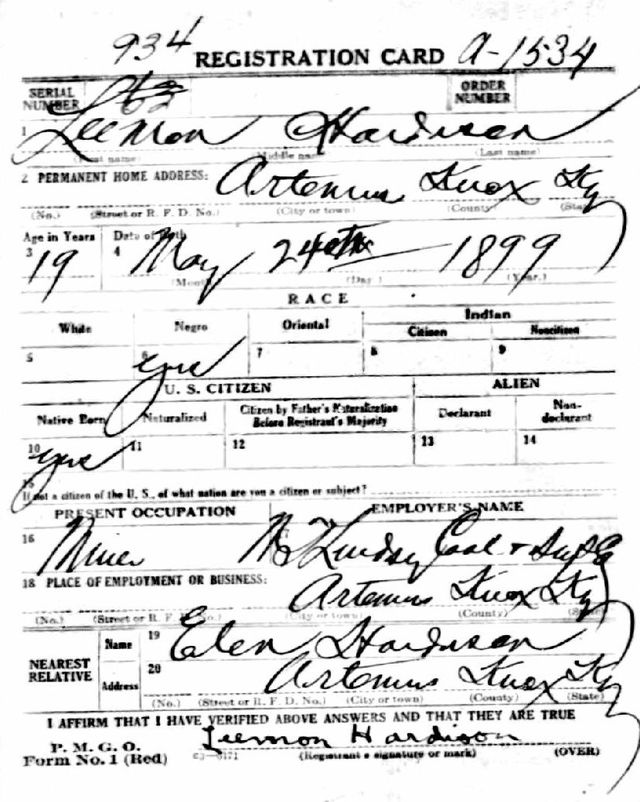 934 REGISTRATION CARD A-1534
SERIAL NUMBER 63 ORDER NUMBER
1 Leemon Hardison
(First name) (Middle name) (Last name)
2 PERMANENT HOME ADDRESS: Artemus Knox Ky
(No.) (Street or R. F. D. No.) (City or town) (County) (State)
Age in Years Date of Birth
3 19 4 May 24th 1899
(Month) (Day) (Year.)
RACE
White Negro Oriental Indian
Citizen Noncitizen
5 6 yes 7 8 9
U. S. CITIZEN ALIEN
Native Born Naturalized Citizen by Father's Naturalization Before Registrant's Majority Declarant Non-declarant
10 yes 11 12 13 14
15
If not a citizen of the U. S., of what nation are you a citizen or subject?
PRESENT OCCUPATION EMPLOYER'S NAME
16 Miner 17 Lindsay Coal +
18 PLACE OF EMPLOYMENT OR BUSINESS: Artemus Knox Ky
(No.) (Street or R. F. D. No.) (City or town) (County) (State)
NEAREST RELATIVE Name 19 Elen Hardison
Address 20 Artemus Knox Ky
(No.) (Street or R. F. D. No.) (City or town) (County) (State)
I AFFIRM THAT I HAVE VERIFIED ABOVE ANSWERS AND THAT THEY ARE TRUE
P. M. G. O. Leemon Hardison
Form No. 1 (Red) (Registrant's signature or mark) (OVER)